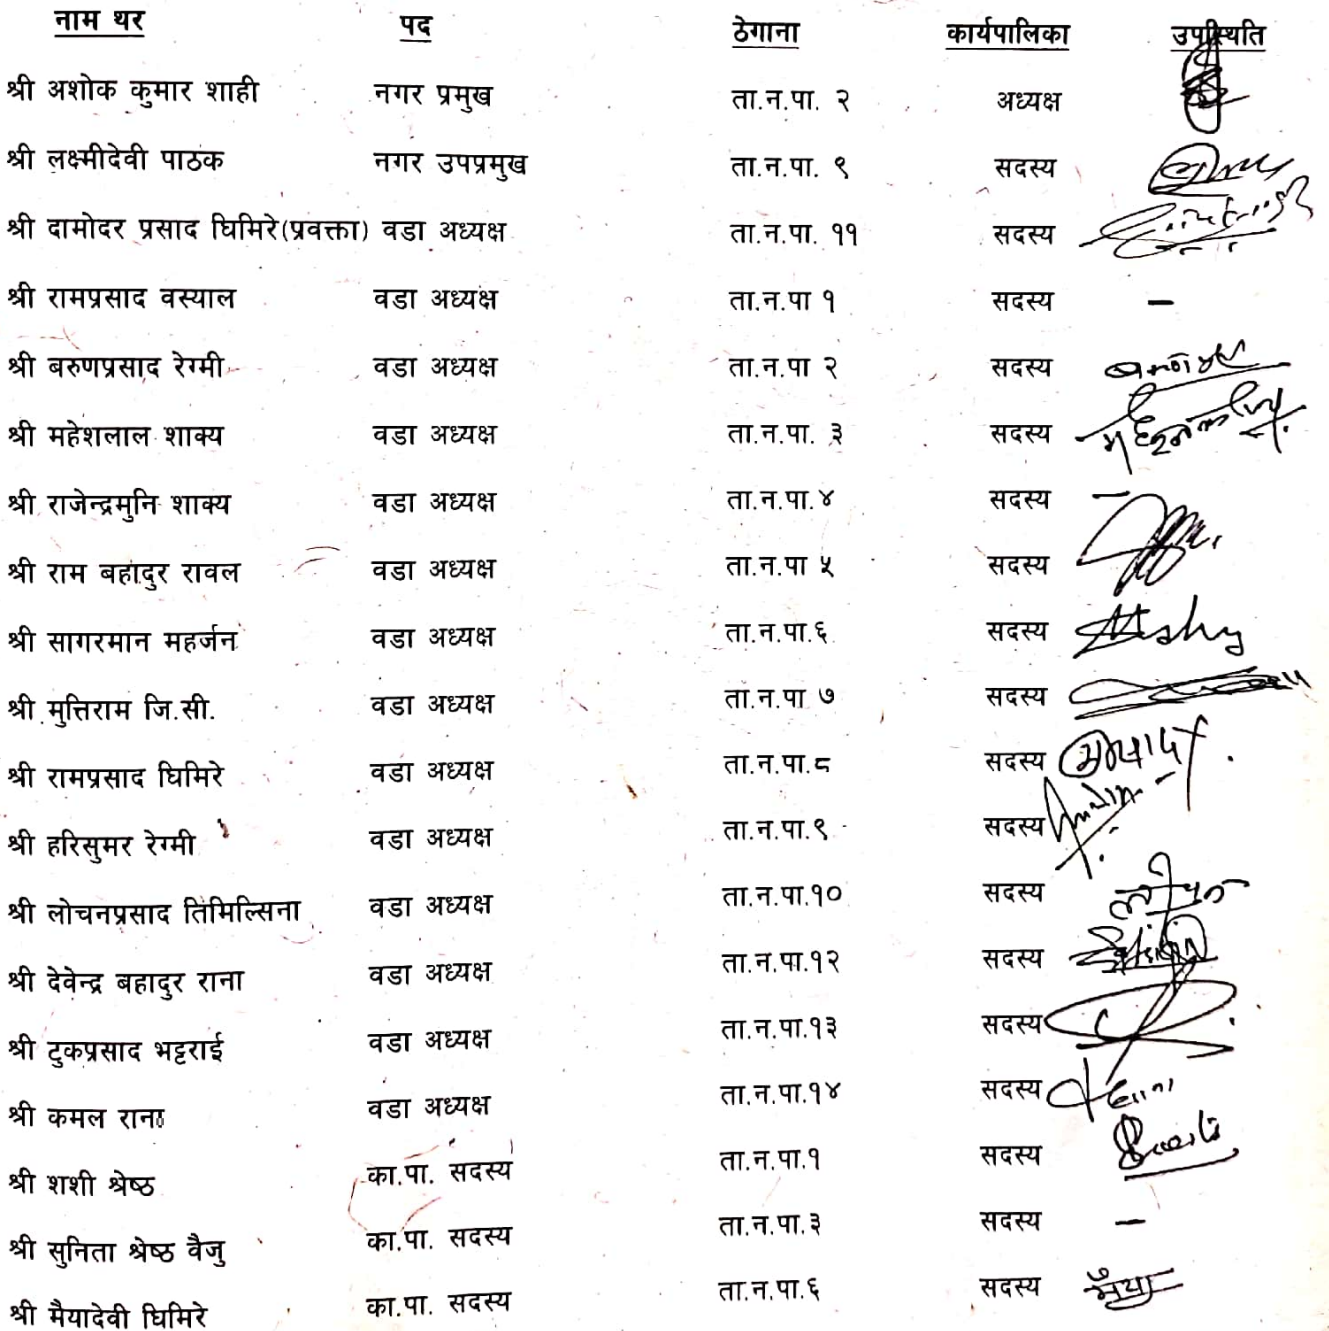 नाम थर पद ठेगाना कार्यपालिका उपस्थिति
श्री अशोक कुमार शाही नगर प्रमुख ता.न.पा. २ अध्यक्ष
श्री लक्ष्मीदेवी पाठक नगर उपप्रमुख ता.न.पा. ९ सदस्य
श्री दामोदर प्रसाद घिमिरे(प्रवक्ता) वडा अध्यक्ष ता.न.पा. ११ सदस्य
श्री रामप्रसाद वस्याल वडा अध्यक्ष ता.न.पा १ सदस्य –
श्री बरुणप्रसाद रेग्मी वडा अध्यक्ष ता.न.पा २ सदस्य
श्री महेशलाल शाक्य वडा अध्यक्ष ता.न.पा. ३ सदस्य
श्री राजेन्द्रमुनि शाक्य वडा अध्यक्ष ता.न.पा.४ सदस्य
श्री राम बहादुर रावल वडा अध्यक्ष ता.न.पा ५ सदस्य
श्री सागरमान महर्जन वडा अध्यक्ष ता.न.पा.६ सदस्य
श्री मुत्तिराम जि.सी. वडा अध्यक्ष ता.न.पा ७ सदस्य
श्री रामप्रसाद घिमिरे वडा अध्यक्ष ता.न.पा.८ सदस्य
श्री हरिसुमर रेग्मी वडा अध्यक्ष ता.न.पा.९ सदस्य
श्री लोचनप्रसाद तिमिल्सिना वडा अध्यक्ष ता.न.पा.१० सदस्य
श्री देवेन्द्र बहादुर राना वडा अध्यक्ष ता.न.पा.१२ सदस्य
श्री टुकप्रसाद भट्टराई वडा अध्यक्ष ता.न.पा.१३ सदस्य
श्री कमल राना वडा अध्यक्ष ता.न.पा.१४ सदस्य
श्री शशी श्रेष्ठ का.पा. सदस्य ता.न.पा.१ सदस्य
श्री सुनिता श्रेष्ठ वैजु का.पा. सदस्य ता.न.पा.३ सदस्य –
श्री मैयादेवी घिमिरे का.पा. सदस्य ता.न.पा.६ सदस्य मैया